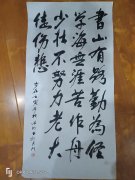 書山有路勤為徑
學海無涯苦作舟
少壯不努力老大
徒傷悲